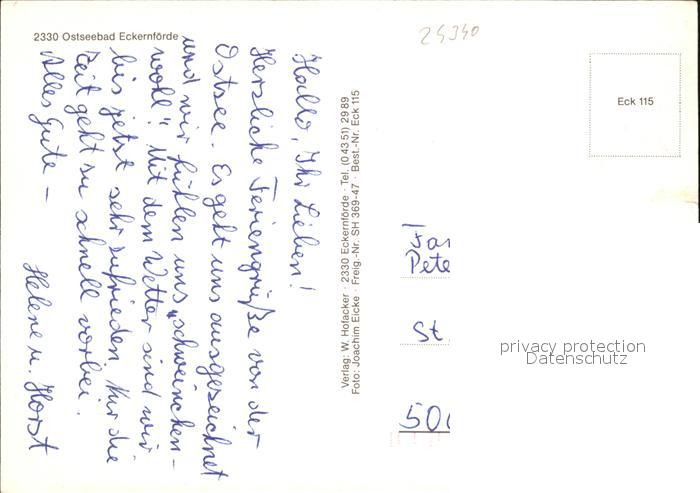 2330 Ostseebad Eckernförde
Hallo, Ihr Lieben!
Herzliche Feriengrüße von der
Ostsee. Es geht uns ausgezeichnet
und wir fühlen uns „schweinchen-
wohl". Mit dem Wetter sind wir
bis jetzt sehr zufrieden. Nur die
Zeit geht zu schnell vorbei.
Alles Gute –
Helene u. Horst
Verlag: W. Hofacker · 2330 Eckernförde · Tel. (0 43 51) 29 89
Foto: Joachim Eicke · Freig.-Nr. SH 369-47 · Best.-Nr. Eck 115
Eck 115
Fa
Pete
St
50
privacy protection
Datenschutz